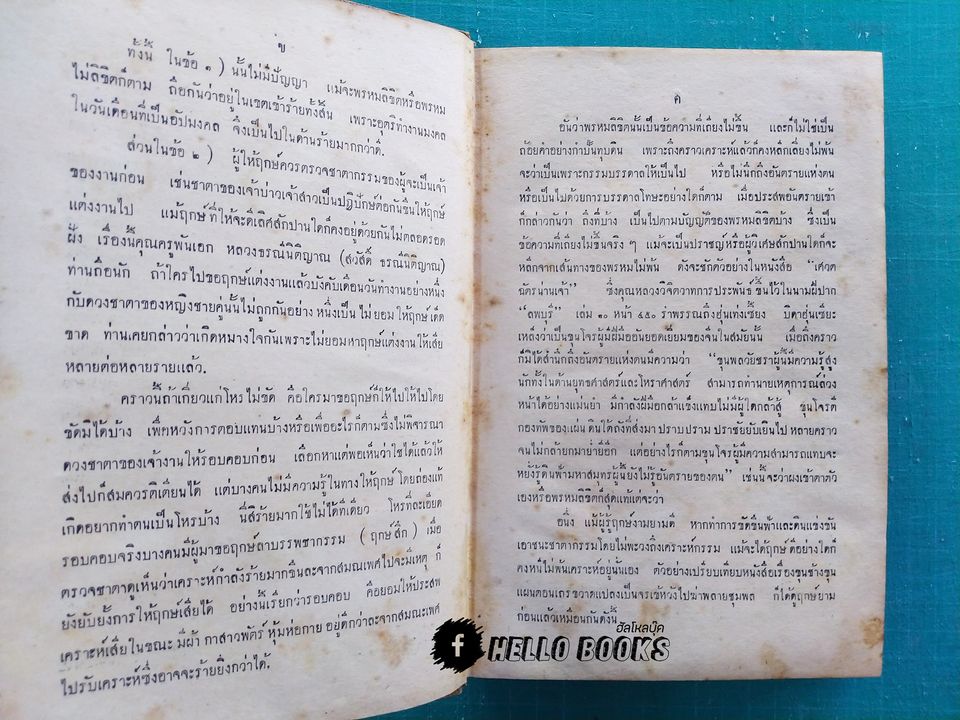 ข
ทั้งนี้ ในข้อ ๑ ) นั้นไม่มีปัญญา แม้จะพรหมลิขิตหรือพรหม
ไม่ลิขิตก็ตาม ถือกันว่าอยู่ในเขตเข้าร้ายทั้งสิ้น เพราะอุตริทำงานมงคล
ในวันเดือนที่เป็นอัปมงคล จึงเป็นไปในด้านร้ายมากกว่าดี.
ส่วนในข้อ ๒ ) ผู้ให้ฤกษ์ควรตรวจชาตากรรมของผู้จะเป็นเจ้า
ของงานก่อน เช่นชาตาของเจ้าบ่าวเจ้าสาวเป็นปฏิปักษ์ต่อกันขืนให้ฤกษ์
แต่งงานไป แม้ฤกษ์ที่ให้จะดีเลิศสักปานใดก็คงอยู่ด้วยกันไม่ตลอดรอด
ฝั่ง เรื่องนี้คุณครูพันเอก หลวงธรณีนิติญาณ (สวัสดิ์ ธรณีนิติญาณ)
ท่านถือนัก ถ้าใครไปขอฤกษ์แต่งงานแล้วบังคับเดือนวันทำงานอย่างหนึ่ง
กับดวงชาตาของหญิงชายคู่นั้นไม่ถูกกันอย่างหนึ่งเป็นไม่ยอมให้ฤกษ์เด็ด
ขาด ท่านเคยกล่าวว่าเกิดหมางใจกันเพราะไม่ยอมหาฤกษ์แต่งงานให้เสีย
หลายต่อหลายรายแล้ว.
คราวนี้ถ้าเกี่ยวแก่โหรไม่ขัด คือใครมาขอฤกษ์ก็ให้ไปให้ไปโดย
ขัดมิได้บ้าง เพื่อหวังการตอบแทนบ้างหรือเพื่ออะไรก็ตามซึ่งไม่พิจารณา
ดวงชาตาของเจ้างานให้รอบคอบก่อน เลือกหาแต่พอเห็นว่าใช้ได้แล้วให้
ส่งไปก็สมควรติเตียนได้ แต่บางคนไม่มีความรู้ในทางให้ฤกษ์โดยถ่องแท้
เกิดอยากทำตนเป็นโหรบ้าง นี่สิร้ายมากใช้ไม่ได้ทีเดียว โหรที่ละเอียด
รอบคอบจริงบางคนมีผู้มาขอฤกษ์ลาบรรพชากรรม ( ฤกษ์สึก ) เมื่อ
ตรวจชาตาดูเห็นว่าเคราะห์กำลังร้ายมากขืนละจากสมณเพศไปจะมีเหตุ ก็
ยังยับยั้งการให้ฤกษ์เสียได้ อย่างนี้เรียกว่ารอบคอบ คือยอมให้ประสพ
เคราะห์เสียในขณะ มีผ้า กาสาวพัตร์ หุ้มห่อกาย อยู่ดีกว่าละจากสมณะเพศ
ไปรับเคราะห์ซึ่งอาจจะร้ายยิ่งกว่าได้.
ค
อันว่าพรหมลิขิตนั้นเป็นข้อความที่เถียงไม่ขึ้น และก็ไม่ใช่เป็น
ถ้อยคำอย่างกำปั้นทุบดิน เพราะถึงคราวเคราะห์แล้วก็คงหลีกเลี่ยงไม่พ้น
จะว่าเป็นเพราะกรรมบรรดาลให้เป็นไป หรือไม่นึกถึงอันตรายแห่งตน
หรือเป็นไปด้วยการบรรดาลโทษะอย่างใดก็ตาม เมื่อประสพอันตรายเข้า
ก็กล่าวกันว่า ถึงที่บ้าง เป็นไปตามบัญญัติของพรหมลิขิตบ้าง ซึ่งเป็น
ข้อความที่เถียงไม่ขึ้นจริง ๆ แม้จะเป็นปราชญ์หรือผู้วิเศษสักปานใดก็จะ
หลีกจากเส้นทางของพรหมไม่พ้น ดังจะชักตัวอย่างในหนังสือ “เศวต
ฉัตรน่านเจ้า” ซึ่งคุณหลวงวิจิตวาทการประพันธ์ ขึ้นไว้ในนามผีปาก
“ลพบุรี” เล่ม ๓๐ หน้า ๔๕๐ รำพรรณถึงฮุ่นเทงเชียง บิดาฮุ่นเชียะ
เหล็งว่าเป็นขุนโจรผู้มีฝีมืออันยอดเยี่ยมของจีนในสมัยนั้น เมื่อถึงคราว
ก็มิได้สำนึกถึงอันตรายแห่งตนมีความว่า “ขุนพลวัยชราผู้นี้มีความรู้สูง
นักทั้งในด้านยุทธศาสตร์และโหราศาสตร์ สามารถทำนายเหตุการณ์ล่วง
หน้าได้อย่างแม่นยำ มีกำลังฝีมือกล้าแข็งแทบไม่มีผู้ใดกล้าสู้ ขุนโจรตี
กองทัพของแผ่นดินใต้ถังที่ส่งมา ปราบปราม ปราชัยยับเยินไป หลายคราว
จนไม่กล้ายกมาย่ำยีอีก แต่อย่างไรก็ตามขุนโจรผู้มีความสามารถแทบจะ
หยั่งรู้ดินฟ้ามหาสมุทรผู้นี้ยังไม่รู้อันตรายของตน” เช่นนี้จะว่าผงเข้าตาตัว
เองหรือพรหมลิขิตก็สุดแท้แต่จะว่า
อนึ่ง แม้ผู้รู้ฤกษ์งามยามดี หากทำการขัดขืนฟ้าและดินแข่งขัน
เอาชนะชาตากรรมโดยไม่พะวงถึงเคราะห์กรรม แม้จะได้ฤกษ์ดีอย่างใดก็
คงหนีไม่พ้นเคราะห์อยู่นั้นเอง ตัวอย่างเปรียบเทียบหนังสือเรื่องขุนช้างขุน
แผนตอนเถรขวาดแปลงเป็นจรเข้หวังไปฆ่าพลายชุมพล ก็ได้ดูฤกษ์ยาม
ก่อนแล้วเหมือนกันดังนี้
ฮัลโหลบุ๊ค
f HELLO BOOKS